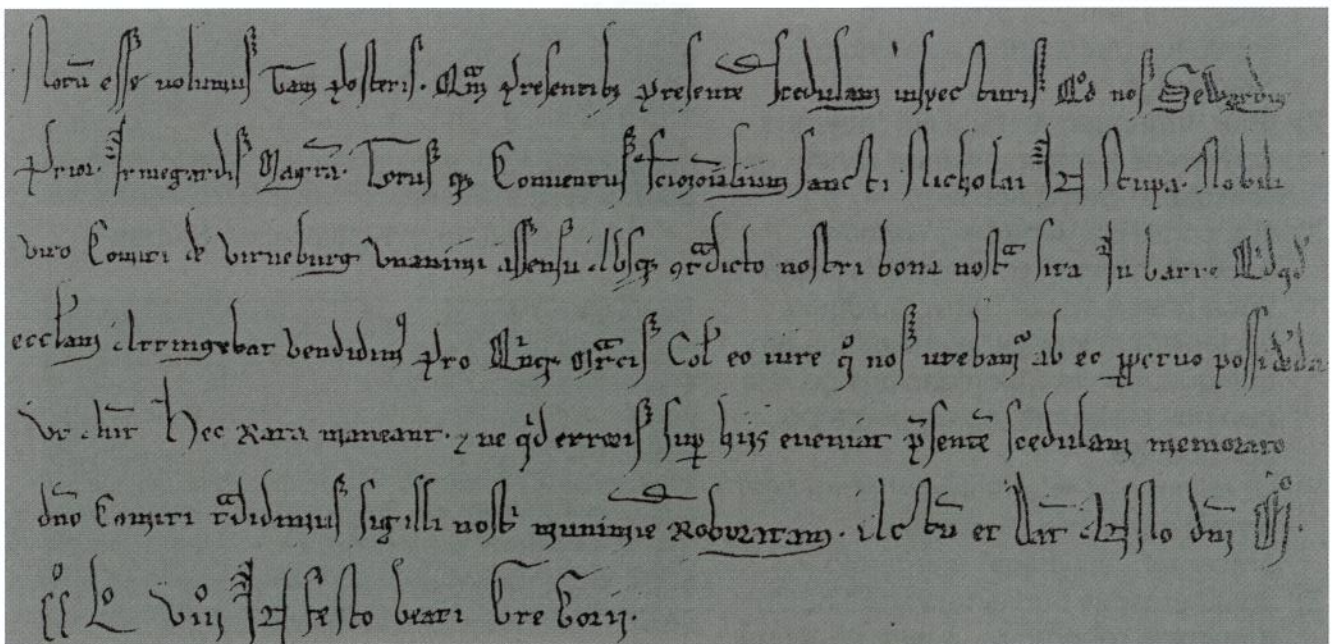 Notū esse volumus tam posteris. Qm̄ presentibꝫ presentē scedulam inspecturis Qd nos Sewardus
Prior. Irmegardis Magrā. Totus qꝫ Conventus sancti Nicholai In Stupa. Nobili
viro Comiti de virneburg vnanimi assensu Absqꝫ ꝯtᵃdicto nostri bona nostᵃ sita In barre
eccl'am Attingebat vendidimꝰ pro Qinqꝫ Mᵃrcis Col' eo iure qͦ nos utebamꝰ ab eo ꝑpetuo possidēda
Vt Aūt Hec Rata maneant. ⁊ ne qid erroris suꝑ hijs eveniat p̄sentē scedulam memorato
dn̄o Comiti tᵃdidimus sigilli nostⁱ munimīe Roboratam. Actū et Dat Anno dn̄j Mͦ.
CCͦ Lͦ viijͦ In festo beati Gregorij.